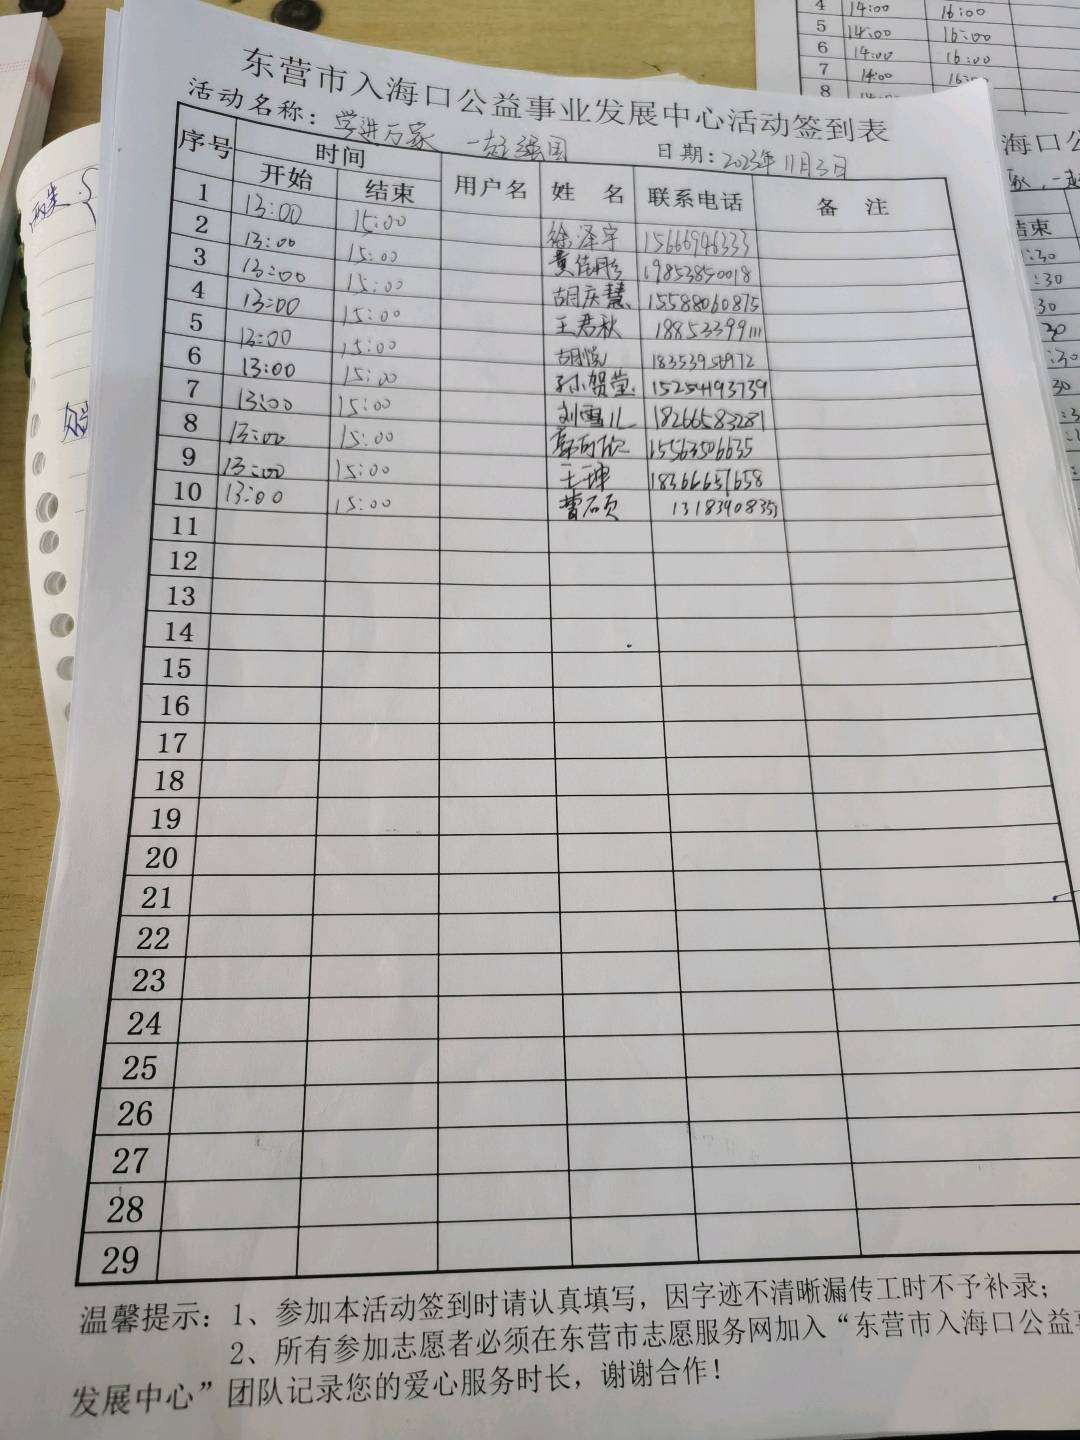 东营市入海口公益事业发展中心活动签到表
活动名称：学进万家 一起强国 日期：2023年11月3日
序号 时间 用户名 姓 名 联系电话 备 注
开始 结束
1 13:00 15:00 徐泽宇 15666946333
2 13:00 15:00 黄佳彤 19853850018
3 13:00 15:00 胡庆慧 15588060875
4 13:00 15:00 王君秋 18853399111
5 13:00 15:00 胡悦
6 13:00 15:00 孙贺莹 15254193739
7 13:00 15:00 刘雪儿 18266583281
8 13:00 15:00 15563506635
9 13:00 15:00 王坤 18366651658
10 13:00 15:00 曹硕 13183908351
11
12
13
14
15
16
17
18
19
20
21
22
23
24
25
26
27
28
29
温馨提示：1、参加本活动签到时请认真填写，因字迹不清晰漏传工时不予补录；
2、所有参加志愿者必须在东营市志愿服务网加入“东营市入海口公益事
发展中心”团队记录您的爱心服务时长，谢谢合作！
4 14:00 16:00
5 14:00 16:00
6 14:00 16:00
7 14:00
8
海口公
结束
:30
:30